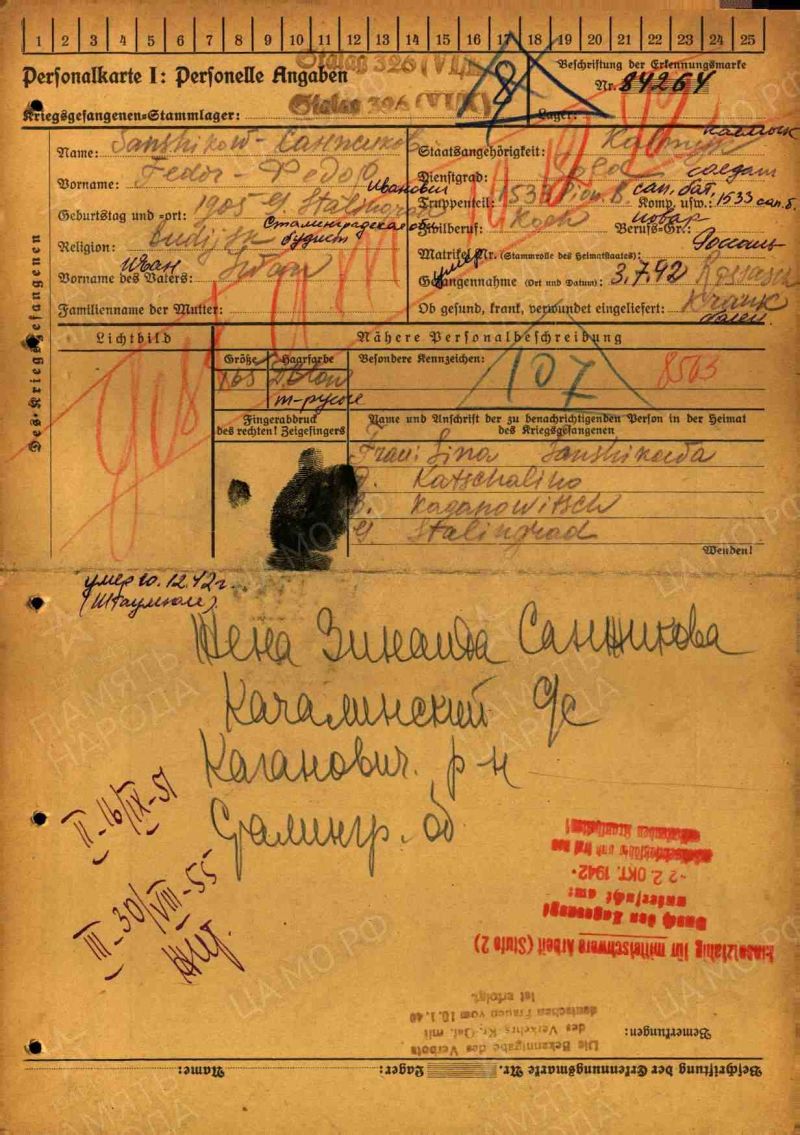 1 2 3 4 5 6 7 8 9 10 11 12 13 14 15 16 17 18 19 20 21 22 23 24 25
Stalag 326 (VI K)
Personalkarte I: Personelle Angaben
8
Beschriftung der Erkennungsmarke
Nr. 84264
Kriegsgefangenen-Stammlager:
Lager:
Des Kriegsgefangenen
Name: Sanshikow - Санжиков
Vorname: Fedor - Федор
Иванович
Geburtstag und -ort: 1905 G. Stalingrad
Сталинградская об.
Religion: буддист
Vorname des Vaters: Iwan
Иван
Familienname der Mutter:
Staatsangehörigkeit: Kalmyk
калмык
Dienstgrad: солдат
Truppenteil: 1533 сан. бат. Komp. usw.: 1533 сан. б.
Zivilberuf: Koch Berufs-Gr.:
повар
Matrikel Nr. (Stammrolle des Heimatstaates):
умер
Россошь
Gefangennahme (Ort und Datum): 3.7.42 Rossosch
Ob gesund, krank, verwundet eingeliefert: Krank
болен
gest. am 10.12.42
Lichtbild
Nähere Personalbeschreibung
Größe Haarfarbe Besondere Kennzeichen:
165
т-русые
107
8563
Fingerabdruck
des rechten! Zeigefingers
Name und Anschrift der zu benachrichtigenden Person in der Heimat
des Kriegsgefangenen
Frau: Sina Sanshikowa
Katschalino
Kaganowitsch
G. Stalingrad
Wenden!
умер 10.12.42 г.
Жена Зинаида Санжикова
Качалинский с/с
Каганович. р-н
Сталингр. об
II-16/IX-51
III-30/VIII-55
Einsatzfähig für mittelschwere Arbeit (Stufe 2)
untersucht am:
2 2. OKT. 1942
Bemerkungen:
Die Bekanntgabe des Verbots
des Verkehrs Kr.-Gef. mit
deutschen Frauen vom 10.1.40
ist erfolgt.
Beschriftung der Erkennungsmarke Nr. Lager: Name:
ПАМЯТЬ
НАРОДА
ЦАМО РФ